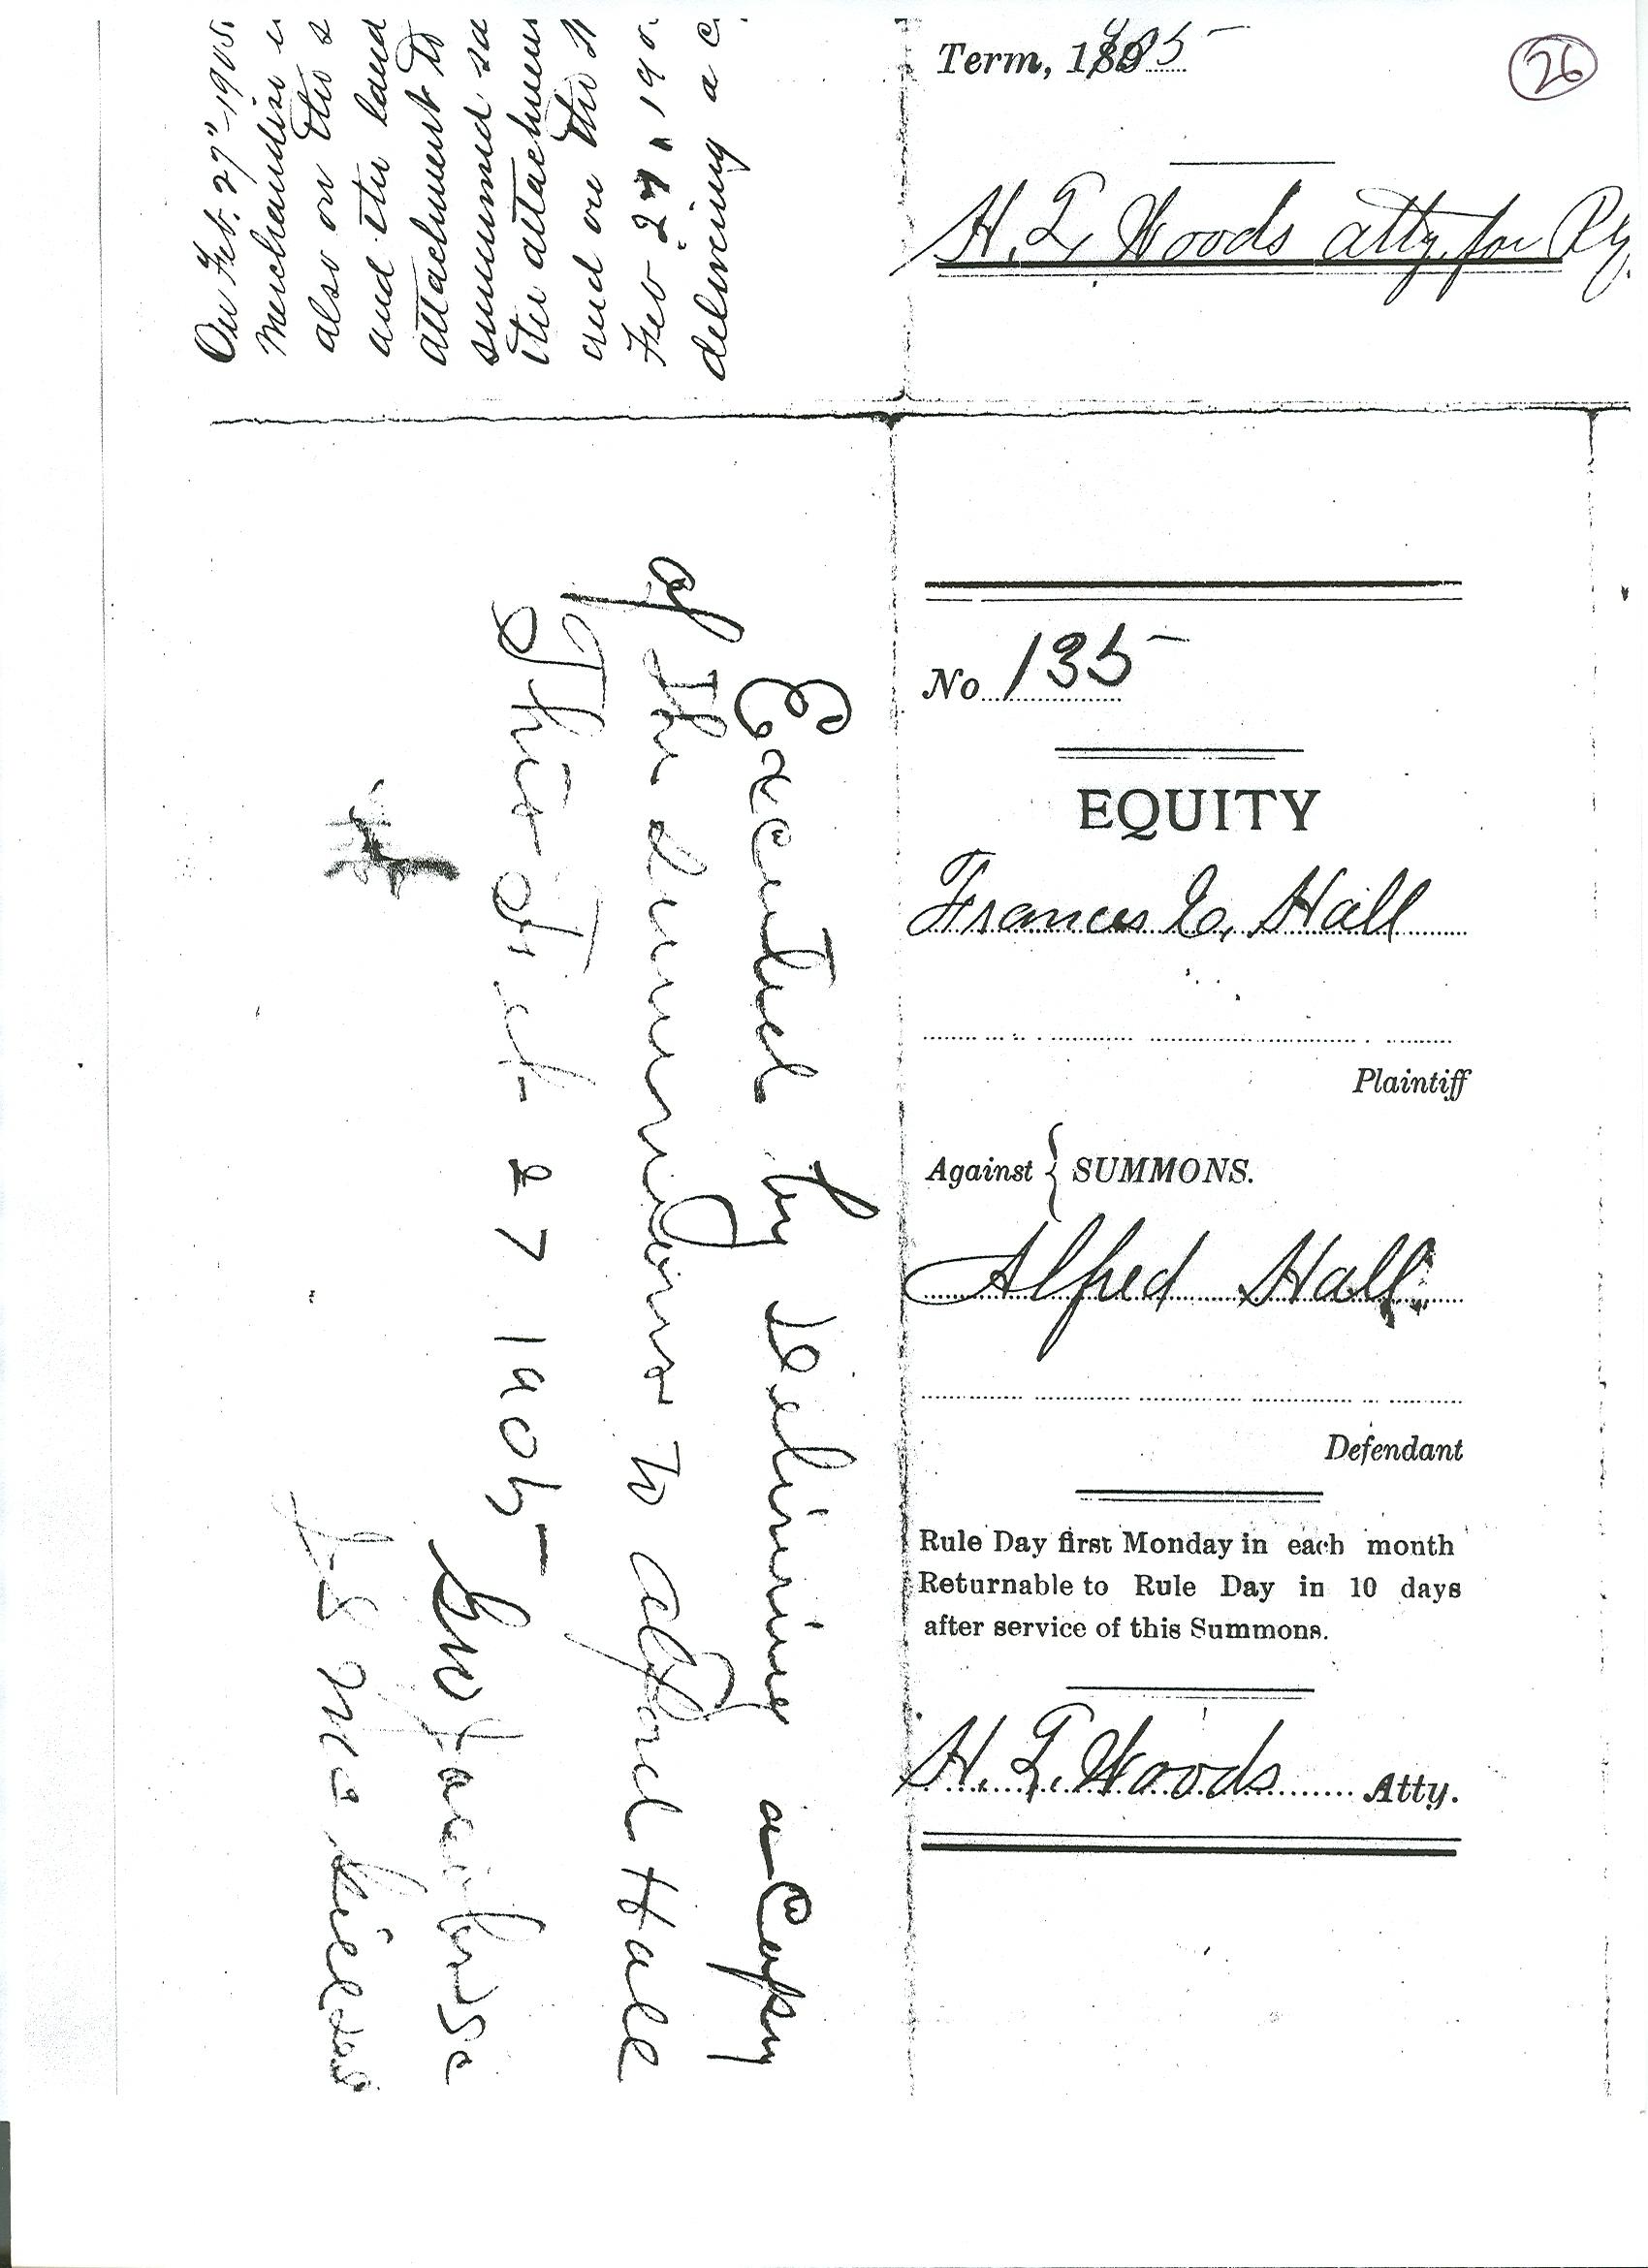 Term, 1905
26
H. T. Woods atty. for
On Feb. 27" 1905.
merchandise
also on the
and the land
attachment to
summoned
the attachment
and on the
Feb. 27" 190
delivering a c
No 135
EQUITY
Frances C. Hall
Plaintiff
Against { SUMMONS.
Alfred Hall
Defendant
Rule Day first Monday in each month
Returnable to Rule Day in 10 days
after service of this Summons.
H. T. Woods Atty.
Executed by delivering a Copy
of the Summons to Alfred Hall
This Feb 27 1905